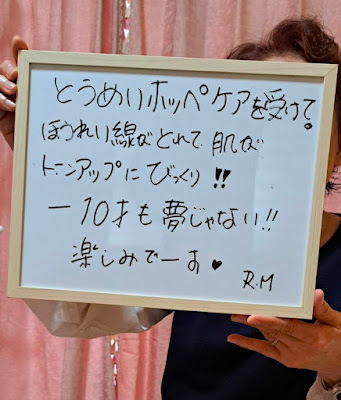 とうめいホッペケアを受けて。
ほうれい線がとれて肌が
トーンアップにびっくり!!
－10才も夢じゃない!!
楽しみでーす♥
R.M